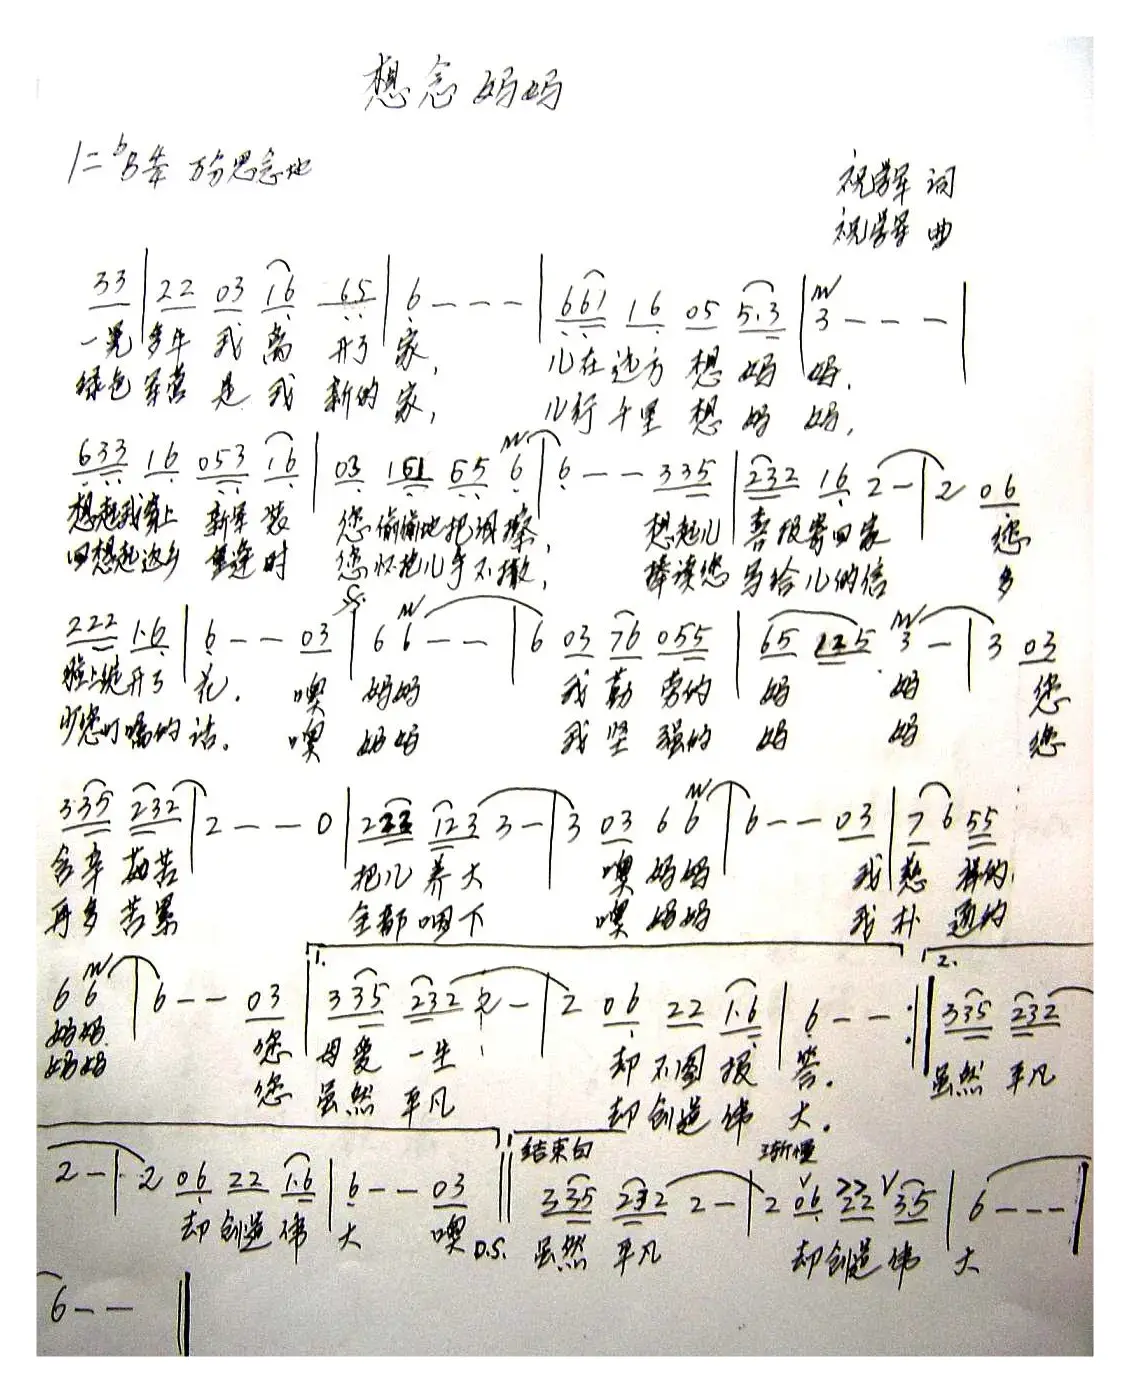 想念妈妈
1=♭B 4/4 万分思念地
祝学军 词
祝学军 曲
33 | 22 03 16 65 | 6 - - - | 661 16 05 5·3 | 3 - - - |
一晃 多年 我 离 开了 家, 儿在 边方 想 妈 妈.
绿色 军营 是 我 新的 家, 儿行 千里 想 妈 妈,
633 16 053 16 | 03 161 65 6 | 6 - - 335 | 232 16 2 - | 2 06
想起我穿上 新军装 您 偷偷地把泪擦, 想起儿 喜报寄回家 您
回想起返乡 重逢时 您 怀抱儿手不撤, 捧读您 写给儿的信 多
222 1·6 | 6 - - 03 | 6 6 - - | 6 03 76 055 | 65 125 3 - | 3 03
脸上绽开了 花. 噢 妈妈 我 勤 劳的 妈 妈 您
少您叮嘱的 话. 噢 妈妈 我 坚 强的 妈 妈 您
3·35 232 | 2 - - 0 | 222 123 3 - | 3 03 6 6 | 6 - - 03 | 7 6 55
含辛 茹苦 把儿 养大 噢 妈妈 我 慈 祥的
再多 苦累 全都 咽下 噢 妈妈 我 朴 通的
1. 2.
6 6 | 6 - - 03 | 335 232 2 - | 2 06 22 1·6 | 6 - - :‖ 335 232
妈妈 您 母爱 一生 却 不图 报 答. 虽然 平凡
妈妈 您 虽然 平凡 却 创造 伟 大.
结束句 渐慢
2 - | 2 06 22 1·6 | 6 - - 03 ‖ 335 232 2 - | 2 06 22 35 | 6 - - - |
却 创造 伟 大 噢 D.S. 虽然 平凡 却 创造 伟 大
6 - - ‖